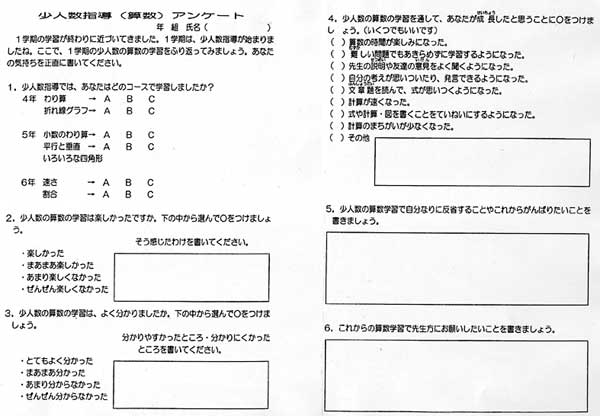 少人数指導（算数）アンケート
年 組 氏名（ ）
1学期の学習が終わりに近づいてきました。1学期は、少人数指導が始まりま
したね。ここで、1学期の少人数の算数の学習をふり返ってみましょう。あなた
の気持ちを正直に書いてください。
1．少人数指導では、あなたはどのコースで学習しましたか？
4年 わり算 → A B C
折れ線グラフ→ A B C
5年 小数のわり算→ A B C
平行と垂直 → A B C
いろいろな四角形
6年 速さ → A B C
割合 → A B C
2．少人数の算数の学習は楽しかったですか。下の中から選んで○をつけましょ
う。
そう感じたわけを書いてください。
・楽しかった
・まあまあ楽しかった
・あまり楽しくなかった
・ぜんぜん楽しくなかった
3．少人数の算数の学習は、よく分かりましたか。下の中から選んで○をつけま
しょう。
分かりやすかったところ・分かりにくかった
ところを書いてください。
・とてもよく分かった
・まあまあ分かった
・あまり分からなかった
・ぜんぜん分からなかった
4．少人数の算数の学習を通して、あなたが成長したと思うことに○をつけま
しょう。（いくつでもいいです）
（ ）算数の時間が楽しみになった。
（ ）難しい問題でもあきらめずに学習するようになった。
（ ）先生の説明や友達の意見をよく聞くようになった。
（ ）自分の考えが思いついたり、発言できるようになった。
（ ）文章題を読んで、式が思いつくようになった。
（ ）計算が速くなった。
（ ）式や計算・図を書くことをていねいにするようになった。
（ ）計算のまちがいが少なくなった。
（ ）その他
5．少人数の算数学習で自分なりに反省することやこれからがんばりたいことを
書きましょう。
6．これからの算数学習で先生方にお願いしたいことを書きましょう。